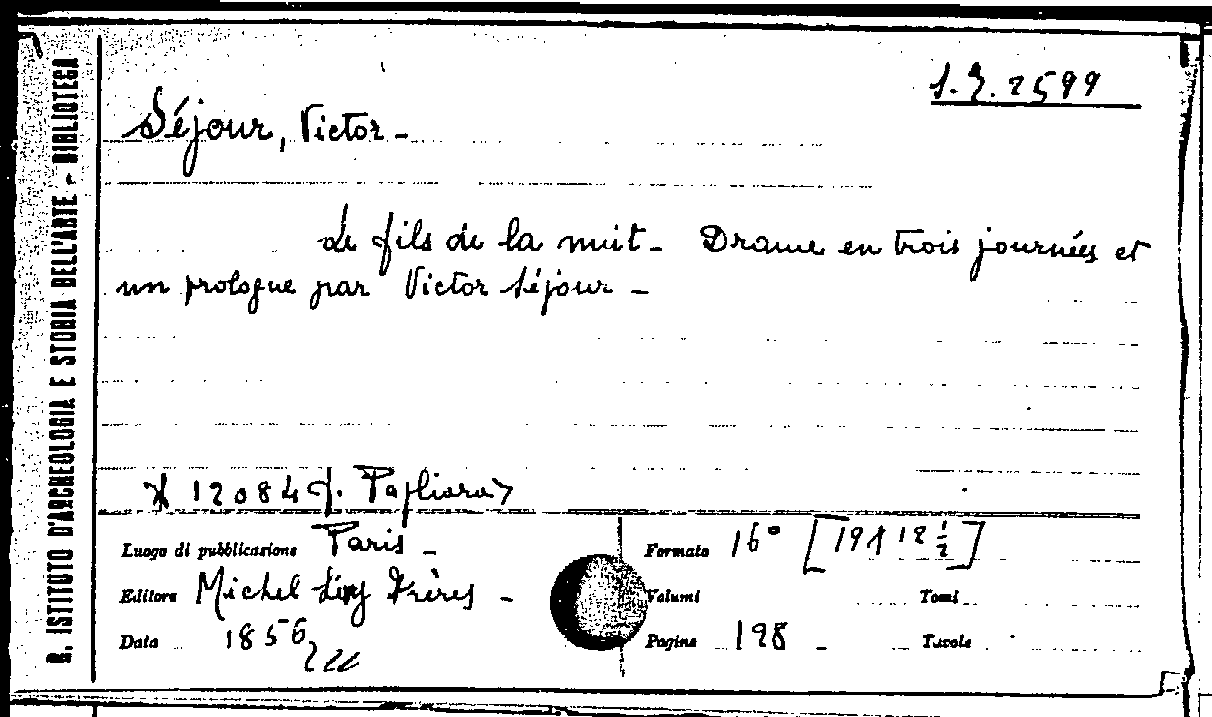 R. ISTITUTO D'ARCHEOLOGIA E STORIA DELL'ARTE - BIBLIOTECA
2599
Séjour, Victor -
Le fils de la nuit - Drame en trois journées et
un prologue par Victor Séjour -
12084 Pagliara
Luogo di pubblicazione Paris -
Formato 16° [19 x 12 ½]
Editore Michel Lévy Frères -
Volumi Tomi
Data 1856
Pagine 198 - Tavole